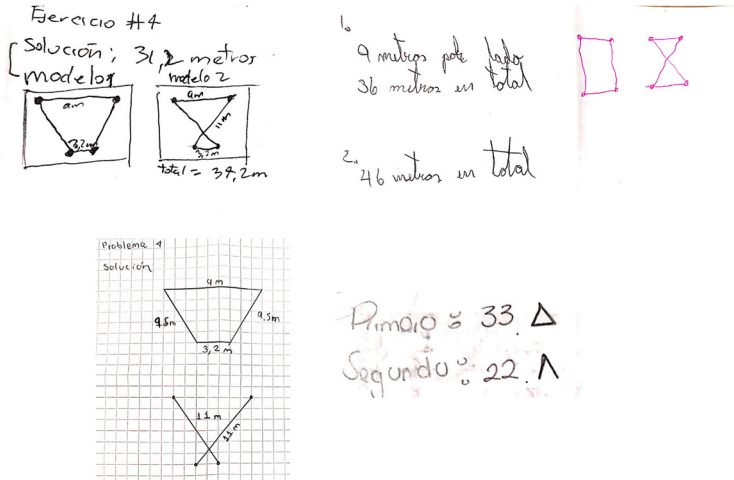 Ejercicio #4
Solución: 31,2 metros
modelo 1
modelo 2
9m
3,2m
9m
11m
3,2m
total = 34,2m
1.
9 metros pote lado
36 metros en total
2.
46 metros en total
Problema 4
Solución
9 m
9,5m
9,5m
3,2 m
11 m
11 m
Primero : 33. Δ
Segundo : 22. Λ